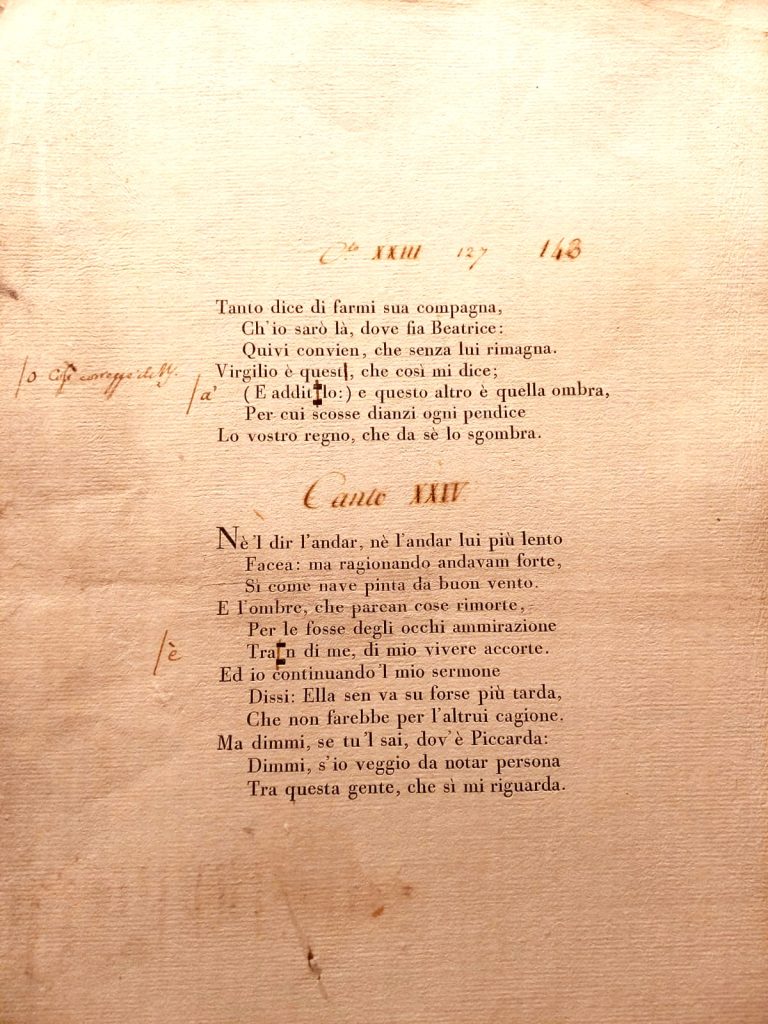 C.to XXIII 127 143
Tanto dice di farmi sua compagna,
Ch'io sarò là, dove fia Beatrice:
Quivi convien, che senza lui rimagna.
/o Così corregge
Virgilio è quest, che così mi dice;
/a'
(E addit lo:) e questo altro è quella ombra,
Per cui scosse dianzi ogni pendice
Lo vostro regno, che da sè lo sgombra.
Canto XXIV
Nè 'l dir l'andar, nè l'andar lui più lento
Facea: ma ragionando andavam forte,
Sì come nave pinta da buon vento.
E l'ombre, che parean cose rimorte,
Per le fosse degli occhi ammirazione
/è
Tra n di me, di mio vivere accorte.
Ed io continuando 'l mio sermone
Dissi: Ella sen va su forse più tarda,
Che non farebbe per l'altrui cagione.
Ma dimmi, se tu 'l sai, dov'è Piccarda:
Dimmi, s'io veggio da notar persona
Tra questa gente, che sì mi riguarda.